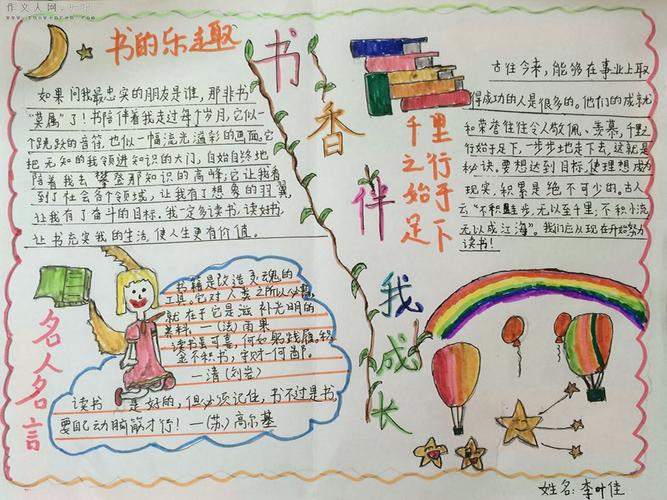 作文人网
书的乐趣
如果问我最忠实的朋友是谁，那非书
“莫属”了！书陪伴着我走过每个岁月，它似一
个跳跃的音符，也似一幅流光溢彩的画面，它
把无知的我领进知识的大门，自始自终地
陪着我去攀登那知识的高峰；它让我看
到了社会各个领域，让我有了想象的羽翼，
让我有了奋斗的目标。我一定多读书、读好书，
让书充实我的生活，使人生更有价值。
书香伴我成长
千里之行
始于足下
古往今来，能够在事业上取
得成功的人是很多的。他们的成就
和荣誉往往令人敬佩、羡慕，千里之
行始于足下，一步一步地走下去，这就是
秘诀。要想达到目标，使理想成为
现实，积累是绝不可少的。古人
云“不积跬步，无以至千里；不积小流，
无以成江海”。我们应从现在开始努力
读书！
名人名言
书籍是改造灵魂的
工具。它对人类之所以必需，
就在于它是滋补光明的
养料。—（法）雨果
读书是可喜，何如躬践履。
金不积书，守财一何鄙。
—清（刘岩）
读书是好的，但必须记住，书不过是书，
要自己动脑筋才行！—（苏）高尔基
姓名：李叶佳